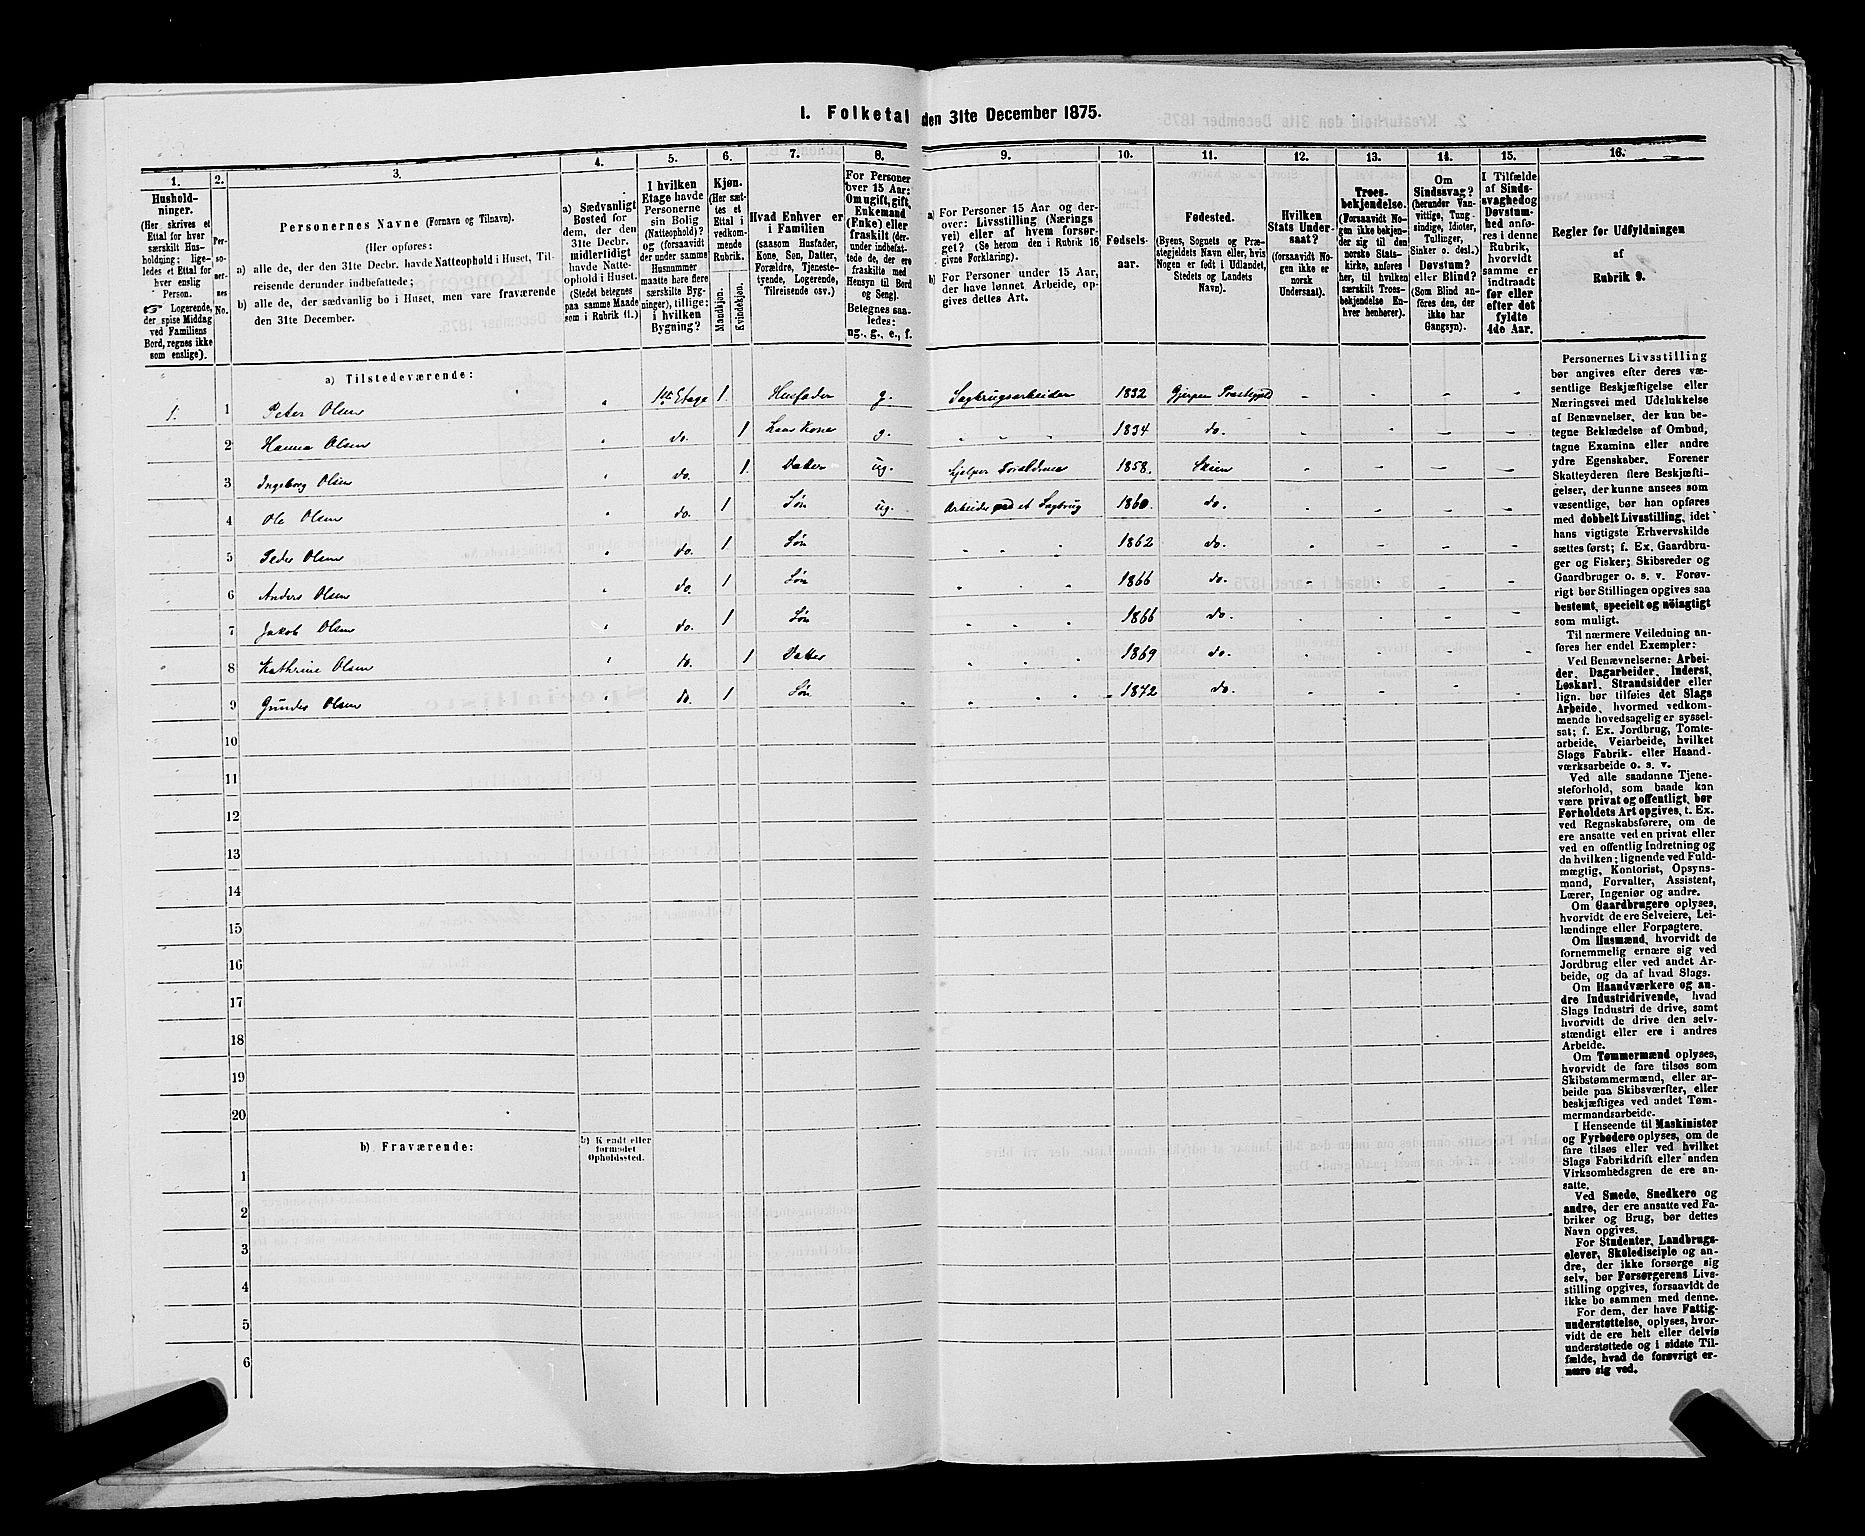 I. Folketal den 31te December 1875.
1.
2.
3.
4.
5.
6.
7.
8.
9.
10.
11.
12.
13.
14.
15.
16.
Hushold-
ninger.
(Her skrives et
Ettal for hver
særskilt Hus-
holdning; lige-
ledes et Ettal for
hver enslig
Person.
☞ Logerende,
der spise Middag
ved Familiens
Bord, regnes ikke
som enslige).
Per-
so-
ner-
nes
No.
Personernes Navne (Fornavn og Tilnavn).
(Her opføres:
a) alle de, der den 31te Decbr. havde Natteophold i Huset, Til-
reisende derunder indbefattede;
b) alle de, der sædvanlig bo i Huset, men vare fraværende
den 31te December.
a) Sædvanligt
Bosted for
dem, der den
31te Decbr.
midlertidigt
havde Natte-
ophold i Huset.
(Stedet betegnes
paa samme Maade
som i Rubrik 11.)
I hvilken
Etage havde
Personerne
sin Bolig
(Natteophold)?
og (forsaavidt
der under samme
Husnummer
maatte høre flere
særskilte Byg-
ninger), tillige:
i hvilken
Bygning?
Kjøn.
(Her sæt-
tes et
Ettal i
vedkom-
mende
Rubrik.
Mandkjøn.
Kvindekjøn.
Hvad Enhver er
i Familien
(saasom Husfader,
Kone, Søn, Datter,
Forældre, Tjeneste-
tyende, Logerende,
Tilreisende osv.)
For Personer
over 15 Aar:
Om ugift, gift,
Enkemand
(Enke) eller
fraskilt (der-
under indbefat-
tede de, der ere
fraskilte med
Hensyn til Bord
og Seng).
Betegnes saa-
ledes:
ug., g., e., f.
a) For Personer 15 Aar og der-
over: Livsstilling (Nærings
vei) eller af hvem forsør-
get? (Se herom den i Rubrik 16
givne Forklaring).
b) For Personer under 15 Aar,
der have lønnet Arbeide, op-
gives dettes Art.
Fødsels-
aar.
Fødested.
(Byens, Sognets og Præ-
stegjeldets Navn eller, hvis
Nogen er født i Udlandet,
Stedets og Landets
Navn).
Hvilken
Stats Under-
saat?
(forsaavidt No-
gen ikke er
norsk
Undersaat).
Troes-
bekjendelse.
(Forsaavidt No-
gen ikke bekjen-
der sig til den
norske Stats-
kirke, anføres
her, til hvilken
særskilt Troes-
bekjendelse En-
hver henhører).
Om
Sindssvag?
(herunder Van-
vittige, Tung-
sindige, Idioter,
Tullinger,
Sinker o. desl.)
Døvstum?
eller Blind?
(Som Blind an-
føres den, der
ikke har
Gangsyn).
I Tilfælde
af Sinds-
svaghed og
Døvstum-
hed anfø-
res i denne
Rubrik,
hvorvidt
samme er
indtraadt
før eller
efter det
fyldte
4de Aar.
Regler for Udfyldningen
af
Rubrik 9.
a) Tilstedeværende:
1. 1 Peter Olsen " 1ste Etage 1. Husfader g. Sagbrugsarbeider 1832 Gjerpen Præstegjeld - - - -
2 Hanna Olsen " do. 1 hans Kone g. " " " 1834 do. - - - -
3 Ingeborg Olsen " do. 1. Datter ug. hjelper Forældrene 1858. Skien - - - -
4 Ole Olsen " do. 1 Søn ug. Arbeider ved et Sagbrug 1860. do. - - - -
5 Peder Olsen " do. 1 Søn " " " 1862 do. - - - -
6 Anders Olsen " do. 1 Søn " " " 1866 do. - - - -
7 Jakob Olsen " do. 1 Søn " " " 1866 do. - - - -
8 Kathrine Olsen " do. 1 Datter " " " 1869 do. - - - -
9 Gunder Olsen " do. 1 Søn " " " 1872 do. - - - -
10
11
12
13
14
15
16
17
18
19
20
b) Fraværende:
b) Kjendt eller
formodet
Opholdssted.
1
2
3
4
5
6
Personernes Livsstilling
bør angives efter deres væ-
sentlige Beskjæftigelse eller
Næringsvei med Udelukkelse
af Benævnelser, der kun be-
tegne Beklædelse af Ombud,
tagne Examina eller andre
ydre Egenskaber. Forener
Skatteyderen flere Beskjæfti-
gelser, der kunne ansees som
væsentlige, bør han opføres
med dobbelt Livsstilling, idet
hans vigtigste Erhvervskilde
sættes først; f. Ex. Gaardbru-
ger og Fisker; Skibsreder og
Gaardbruger o. s. v. Forøv-
rigt bør Stillingen opgives saa
bestemt, specielt og nøiagtigt
som muligt.
Til nærmere Veiledning an-
føres her endel Exempler:
Ved Benævnelserne: Arbei-
der, Dagarbeider, Inderst,
Løskarl, Strandsidder eller
lign. bør tilføies det Slags
Arbeide, hvormed vedkom-
mende hovedsagelig er syssel-
sat; f. Ex. Jordbrug, Tomte-
arbeide, Veiarbeide, hvilket
Slags Fabrik- eller Haand-
værksarbeide o. s. v.
Ved alle saadanne Tjene-
steforhold, som baade kan
være privat og offentligt, bør
Forholdets Art opgives, t. Ex.
ved Regnskabsførere, om de
ere ansatte ved en privat eller
ved en offentlig Indretning og
da hvilken; lignende ved Fuld-
mægtig, Kontorist, Opsyns-
mand, Forvalter, Assistent,
Lærer, Ingeniør og andre.
Om Gaardbrugere oplyses,
hvorvidt de ere Selveiere, Lei-
lændinge eller Forpagtere.
Om Husmænd, hvorvidt de
fornemmelig ernære sig ved
Jordbrug eller ved andet Ar-
beide, og da af hvad Slags.
Om Haandværkere og an-
dre Industridrivende, hvad
Slags Industri de drive, samt
hvorvidt de drive den selv-
stændigt eller ere i andres
Arbeide.
Om Tømmermænd oplyses,
hvorvidt de fare tilsøs som
Skibstømmermænd, eller ar-
beide paa Skibsværfter, eller
beskjæftiges ved andet Tøm-
mermandsarbeide.
I Henseende til Maskinister
og Fyrbødere oplyses, om de
fare tilsøs eller ved hvilket
Slags Fabrikdrift eller anden
Virksomhedsgren de ere an-
satte.
Ved Smede, Snedkere og
andre, der ere ansatte ved Fa-
briker og Brug, bør dettes
Navn opgives.
For Studenter, Landbrugs-
elever, Skoledisciple og an-
dre, der ikke forsørge sig
selv, bør Forsørgerens Livs-
stilling opgives, forsaavidt de
ikke bo sammen med denne.
For dem, der have Fattig-
understøttelse, oplyses, hvor-
vidt de ere helt eller delvis
understøttede og i sidste Til-
fælde, hvad de forøvrigt er-
nære sig ved.